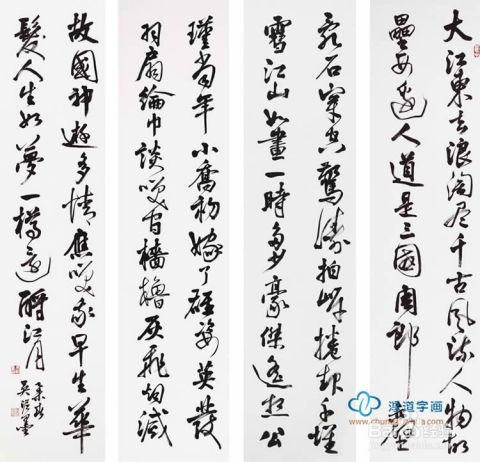 大江東去浪淘尽千古風流人物故
壘西邊人道是三國周郎赤壁
亂石穿空驚濤拍岸捲起千堆
雪江山如畫一時多少豪傑遙想公
瑾當年小喬初嫁了雄姿英發
羽扇綸巾談笑間檣櫓灰飛烟滅
故國神遊多情應笑我早生華
髮人生如夢一樽還酹江月
道字画